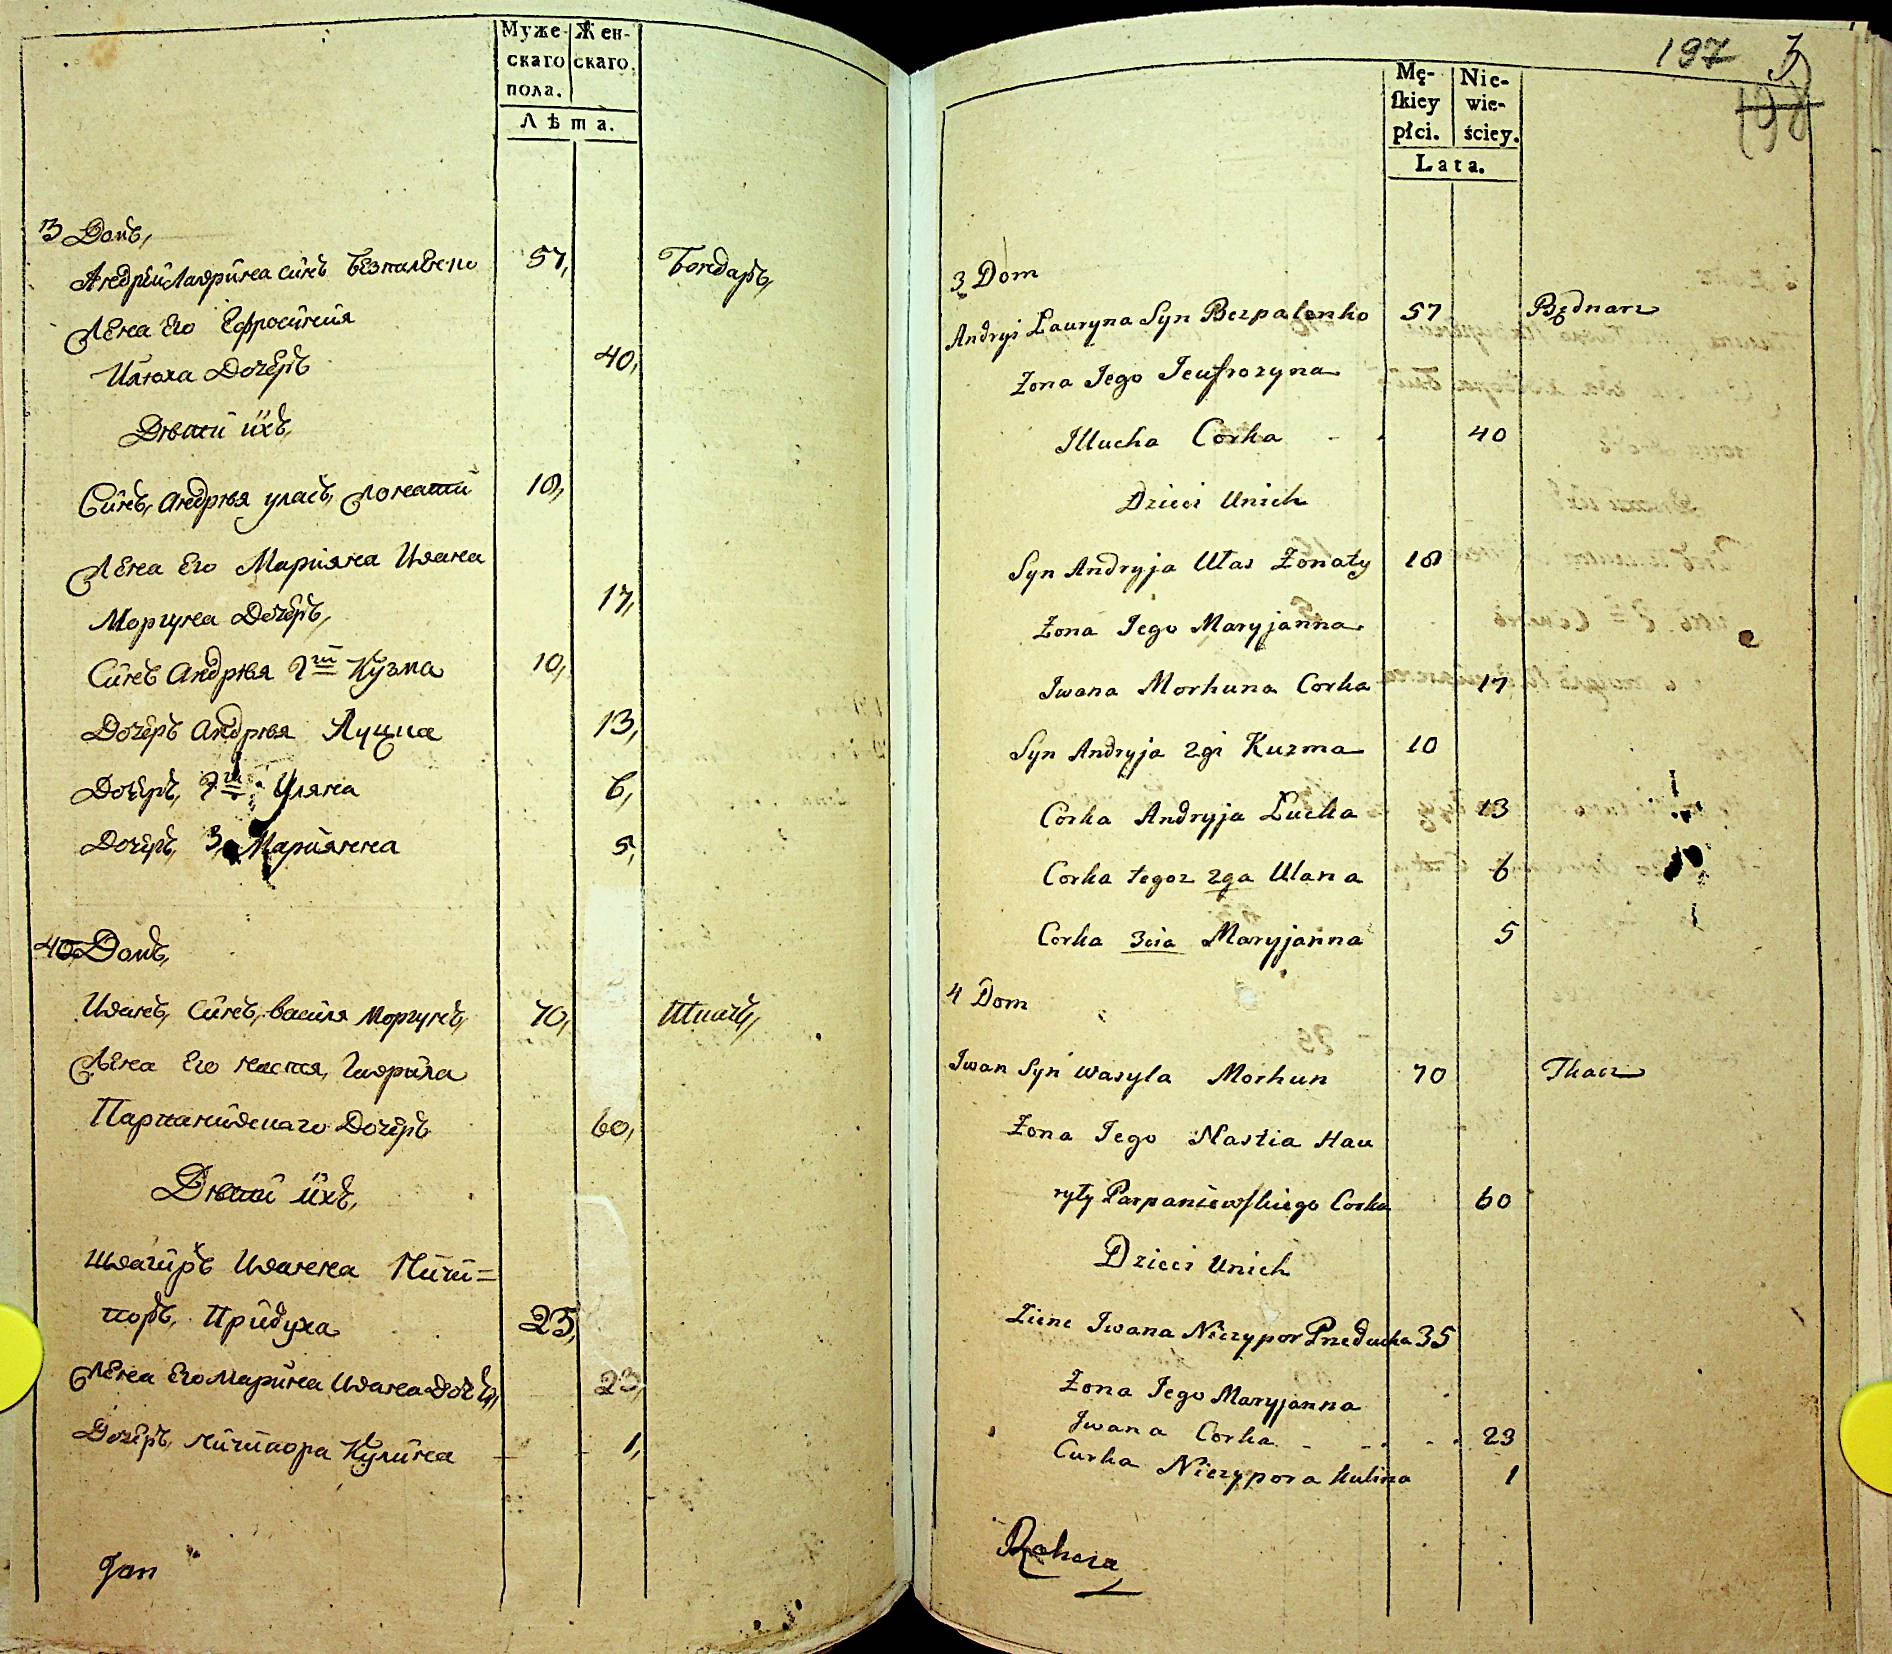 Муже- Жен-
скаго скаго.
пола.
Лѣта.
3 Домъ,
Андрѣй Лаврина синъ Безпаленко 57, Бондаръ,
Жена Его Ефросинія
Илюха Дочеръ 40,
Дѣти ихъ,
Синъ, Андрѣя уласъ, Жонати 18,
Жена Его Маріяна Ивана
Моргуна Дочеръ, 17,
Синъ Андрѣя 2ти Кузма 10,
Дочеръ Андрѣя Луцка 13,
Дочеръ, 2ти Уляна 6,
Дочеръ, 3, Маріянна 5,
4 Домъ,
Иванъ, Синъ, василя Моргунъ, 70, Ткачъ,
Жена Его настя, Гаврила
Парпанивскаго Дочеръ 60,
Дѣти ихъ,
швагиръ Иванна Ничи=
поръ, Придуха 25,
Жена Его Марина Ивана Дочъ, 23,
Дочеръ, Ничипора Кулина 1,
Jan
197 3
198
Mę- Nie-
ſkiey wie-
płci. ściey.
Lata.
3 Dom
Andryi Lauryna Syn Bezpalenko 57 Będnarz
Zona Jego Jeufrozyna
Illucha Corka - - 40
Dzieci Unich
Syn Andryja Ułas Zonaty 18
Zona Jego Maryjanna
Jwana Morhuna Corka 17
Syn Andryja 2gi Kuzma 10
Corka Andryja Lucka 13
Corka tegoz 2ga Ulana 6
Corka 3cia Maryjanna 5
4 Dom
Jwan Syn wasyla Morhun 70 Tkacz
Zona Jego Nastia Hau
ryły Parpaniewſkiego Corka 60
Dzieci Unich
Ziene Jwana Niczypor Preducha 35
Zona Jego Maryjanna
Jwana Corka - - - - 23
Curka Niczypora Kulina 1